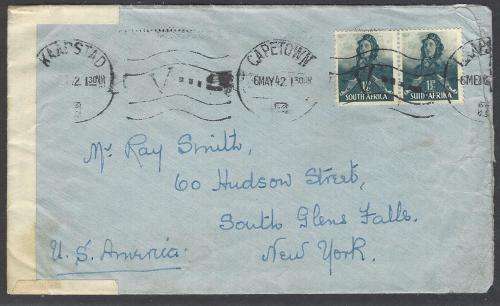 KAAPSTAD
2. 130
V...-
CAPETOWN
6 MAY 42. 130
SOUTH AFRICA
1½
SUID-AFRIKA
Mr Ray Smith,
60 Hudson Street,
South Glens Falls.
New York.
U.S. America